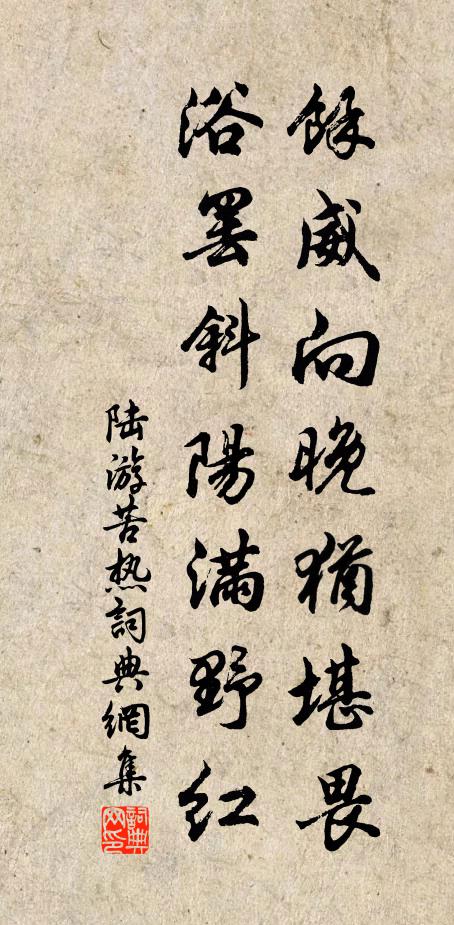 餘威向晚猶堪畏
浴罷斜陽滿野紅
陆游苦热詞典網集
詞典網印